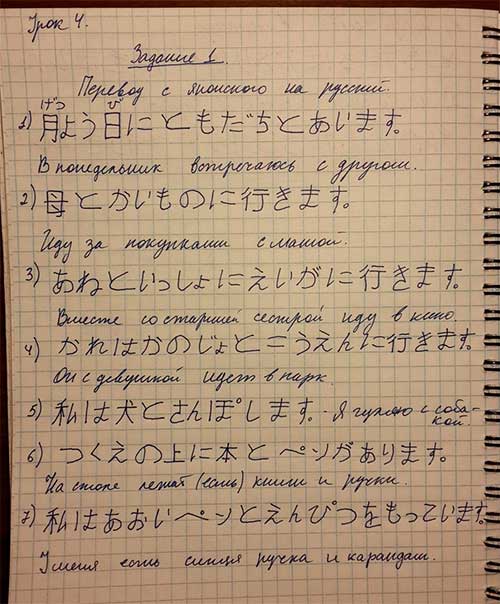 Урок 4.
Задание 1.
Перевод с японского на русский.
げつ び
1) 月よう日にともだちとあいます。
В понедельник встречаюсь с другом.
2) 母とかいものに行きます。
Иду за покупками с мамой.
3) あねといっしょにえいがに行きます。
Вместе со старшей сестрой иду в кино.
4) かれはかのじょとこうえんに行きます。
Он с девушкой идет в парк.
5) 私は犬とさんぽします。- Я гуляю с соба-
кой.
6) つくえの上に本とペンがあります。
На столе лежат (есть) книги и ручки.
7) 私はあおいペンとえんぴつをもっています。
У меня есть синяя ручка и карандаш.